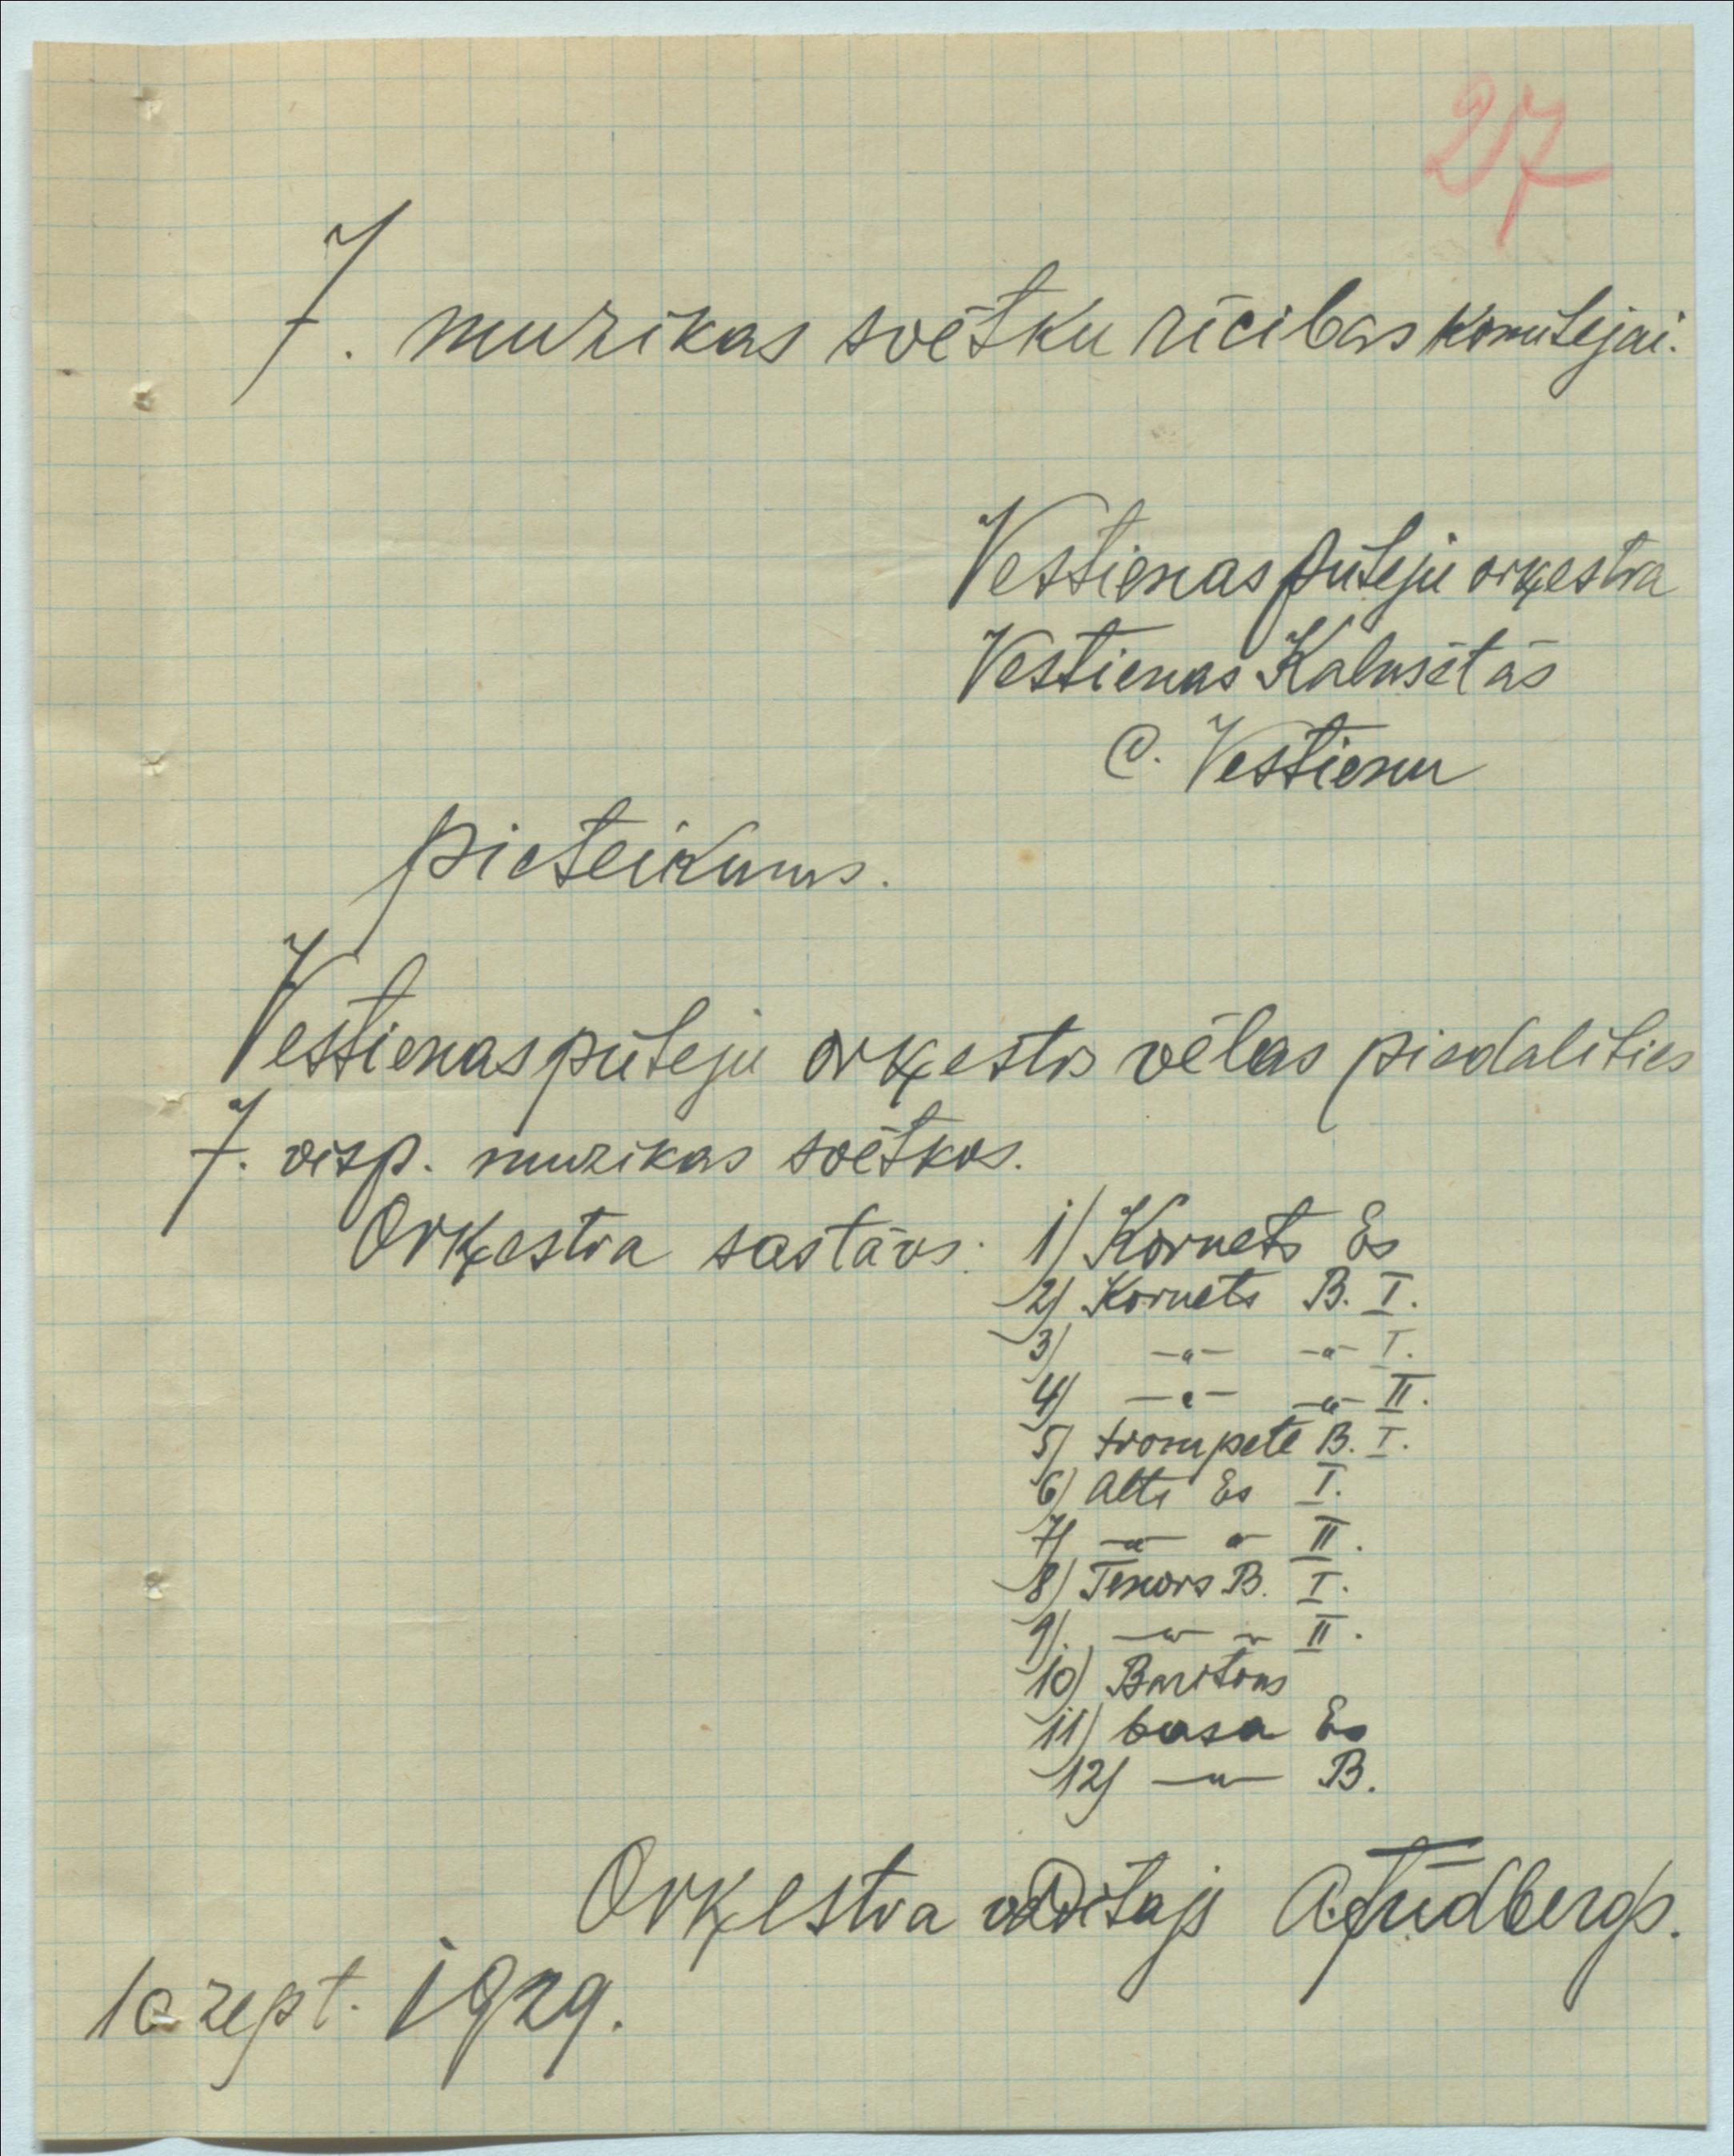 27
7. muzikas svētku rīcibas komitejai.
Vestienas pūtēju orķestra
Vestienas Kalnsētās
c. Vestienu
pieteikums.
Vestienas pūtēju orķestrs vēlas piedalīties
7. visp. muzikas svētkos.
Orķestra sastāvs: 1) Kornets Es
2) Kornets B. I.
3) -"- -"- I.
4) -"- -"- II.
5) trompete B. I.
6) Alts Es I.
7) -"- " II.
8) Tenors B. I.
9). -"- " II.
10) Baritons
11) basa Es
12) -"- B.
Orķestra vaditājs
10 sept. 1929.